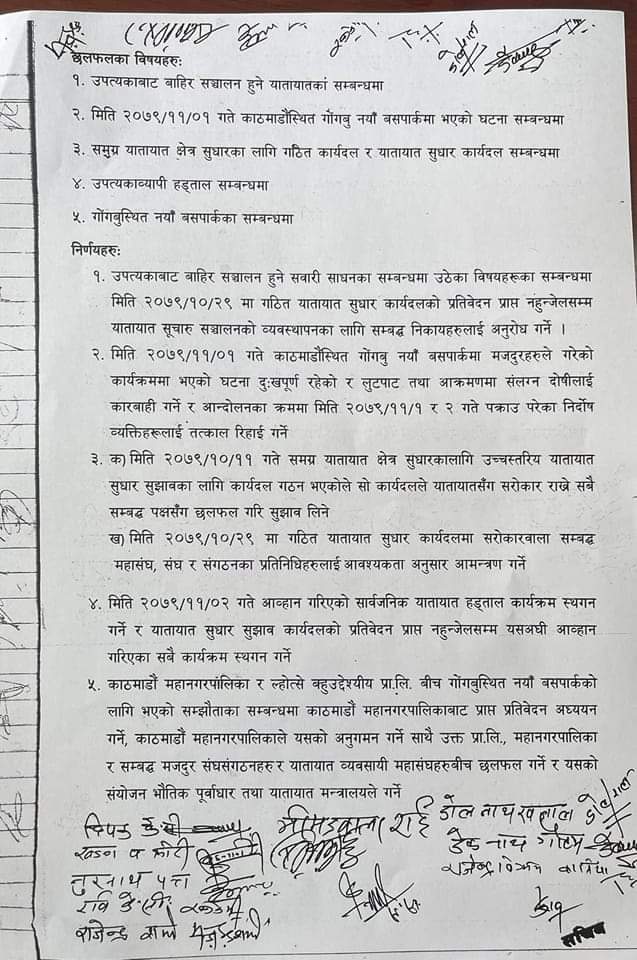 छलफलका विषयहरु:
१. उपत्यकाबाट बाहिर सञ्चालन हुने यातायातकां सम्बन्धमा
२. मिति २०७९/११/०१ गते काठमाडौस्थित गोंगबु नयाँ बसपार्कमा भएको घटना सम्बन्धमा
३. समुग्र यातायात क्षेत्र सुधारका लागि गठित कार्यदल र यातायात सुधार कार्यदल सम्बन्धमा
४. उपत्यकाव्यापी हड्ताल सम्बन्धमा
५. गोंगबुस्थित नयाँ बसपार्कका सम्बन्धमा
निर्णयहरु:
१. उपत्यकाबाट बाहिर सञ्चालन हुने सवारी साधनका सम्बन्धमा उठेका विषयहरूका सम्बन्धमा
मिति २०७९/१०/२९ मा गठित यातायात सुधार कार्यदलको प्रतिवेदन प्राप्त नहुन्जेलसम्म
यातायात सूचारु सञ्चालनको व्यवस्थापनका लागि सम्बद्ध निकायहरुलाई अनुरोध गर्ने ।
२. मिति २०७९/११/०१ गते काठमाडौंस्थित गोंगबु नयाँ बसपार्कमा मजदुरहरुले गरेको
कार्यक्रममा भएको घटना दुःखपूर्ण रहेको र लुटपाट तथा आक्रमणमा संलग्न दोषीलाई
कारबाही गर्ने र आन्दोलनका क्रममा मिति २०७९/११/१ र २ गते पक्राउ परेका निर्दोष
व्यक्तिहरूलाई तत्काल रिहाई गर्ने
३. क) मिति २०७९/१०/११ गते समग्र यातायात क्षेत्र सुधारकालागि उच्चस्तरिय यातायात
सुधार सुझावका लागि कार्यदल गठन भएकोले सो कार्यदलले यातायातसँग सरोकार राख्ने सबै
सम्बद्ध पक्षसँग छलफल गरि सुझाव लिने
ख) मिति २०७९/१०/२९ मा गठित यातायात सुधार कार्यदलमा सरोकारवाला सम्बद्ध
महासंघ, संघ र संगठनका प्रतिनिधिहरुलाई आवश्यकता अनुसार आमन्त्रण गर्ने
४. मिति २०७९/११/०२ गते आव्हान गरिएको सार्वजनिक यातायात हड्ताल कार्यक्रम स्थगन
गर्ने र यातायात सुधार सुझाव कार्यदलको प्रतिवेदन प्राप्त नहुन्जेलसम्म यसअघी आव्हान
गरिएका सबै कार्यक्रम स्थगन गर्ने
५. काठमाडौं महानगरपालिका र ल्होत्से बहुउद्देश्यीय प्रा.लि. बीच गोंगबुस्थित नयाँ बसपार्कको
लागि भएको सम्झौताका सम्बन्धमा काठमाडौं महानगरपालिकाबाट प्राप्त प्रतिवेदन अध्ययन
गर्ने, काठमाडौं महानगरपालिकाले यसको अनुगमन गर्ने साथै उक्त प्रा.लि., महानगरपालिका
र सम्बद्ध मजदुर संघसंगठनहरु र यातायात व्यवसायी महासंघहरुबीच छलफल गर्ने र यसको
संयोजन भौतिक पूर्वाधार तथा यातायात मन्त्रालयले गर्ने
डोल नाथ खनाल
डेक नाथ गौतम
राजेन्द्र
सचिव